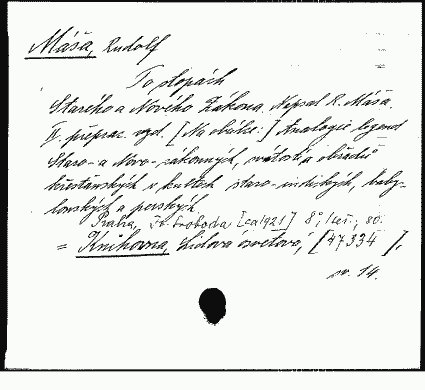 Máša, Rudolf
Po stopách
Starého a Nového Zákona. Napsal R. Máša.
IV. přeprac. vyd. [Na obálce:] Analogie legend
Staro- a Novo-zákonných, svátostí a obřadů
křesťanských v kultech staro-indických, baby-
lonských a perských.
Praha, Sv. Svoboda [ca 1921] 8°, 80.
= Knihovna, Lidová osvětová, [47334],
sv. 14.